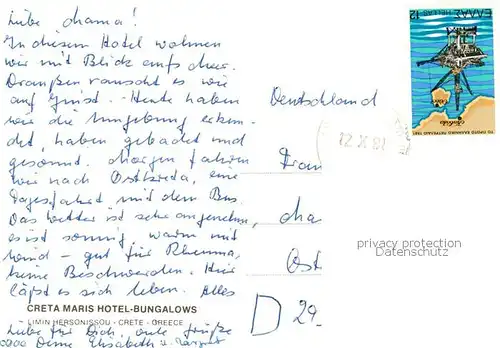 Liebe Mama!
In diesem Hotel wohnen
wir mit Blick aufs Meer.
Draußen rauscht es wie
auf Juist. - Heute haben
wir die Umgebung erkun-
det, haben gebadet und
gesonnt. Morgen fahren
wir nach Ostkreta, eine
Tagesfahrt mit dem Bus.
Das Wetter ist sehr angenehm,
es ist sonnig, warm mit
Wind - gut für Rheuma,
keine Beschwerden. Hier
läßt es sich leben. Alles
CRETA MARIS HOTEL-BUNGALOWS
LIMIN HERSONISSOU - CRETE - GREECE
Liebe für Dich, viele Grüße
Deine Elisabeth u.
ΕΛΛΑΣ HELLAS 12
Deutschland
12 X 82
Frau
Ma
Ost
D 29
privacy protection
Datenschutz